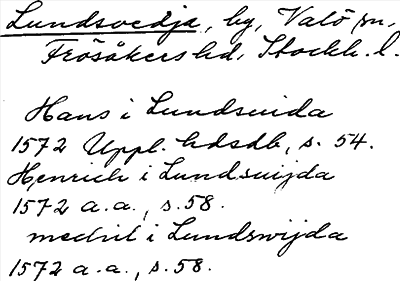 Lundsvedja, by, Valö sn,
Frösåkers hd, Stockh. l.
Hans i Lundsuida
1572 Uppl. hdsdb, s. 54.
Henrich i Lundsuijda
1572 a.a., s. 58.
medhil i Lundswijda
1572 a.a., s. 58.